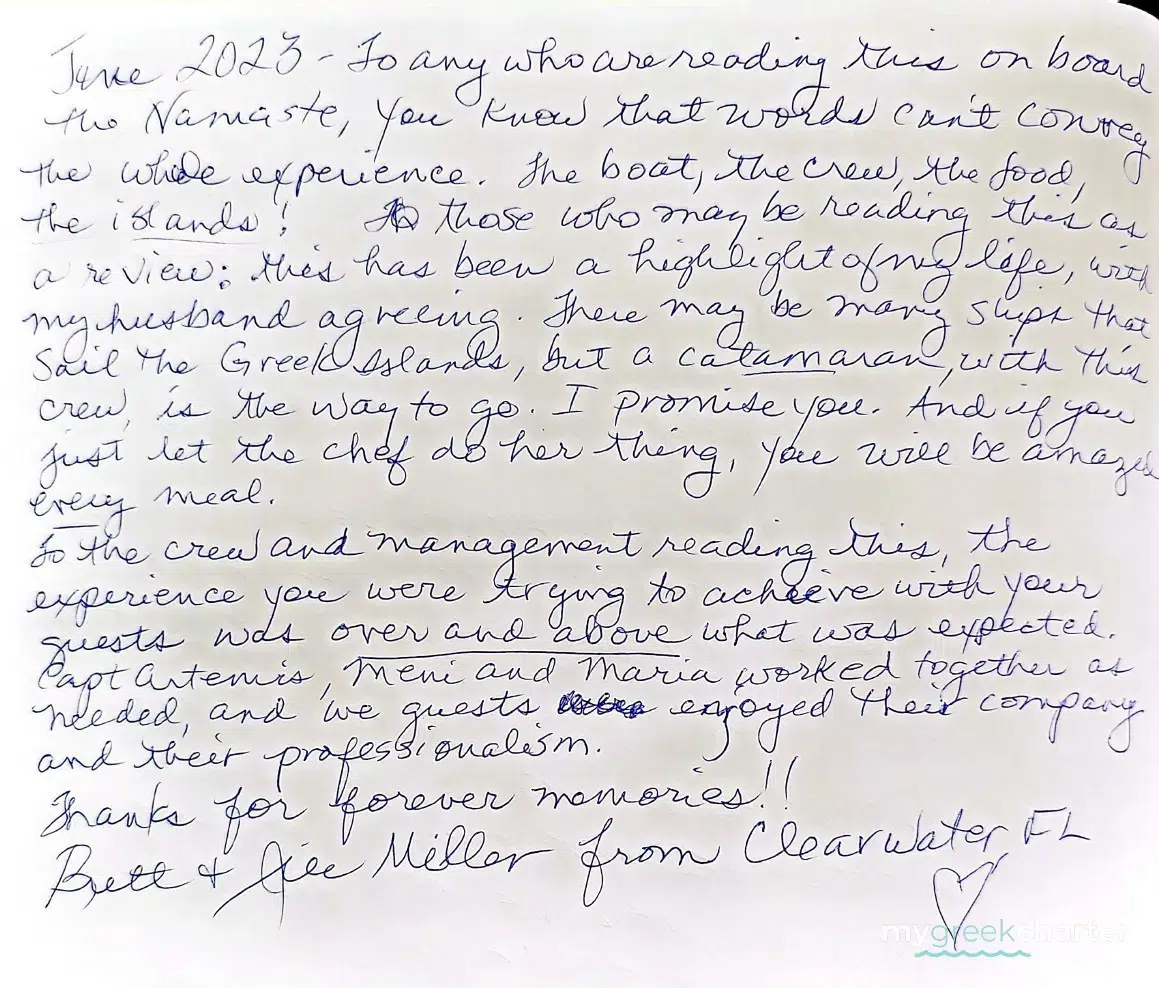 June 2023 - To any who are reading this on board
the Namaste, you know that words can't convey
the whole experience. The boat, the crew, the food,
the islands! To those who may be reading this as
a review: this has been a highlight of my life, with
my husband agreeing. There may be many ships that
Sail the Greek Islands, but a catamaran, with this
crew, is the way to go. I promise you. And if you
just let the chef do her thing, you will be amazed
every meal.
To the crew and management reading this, the
experience you were trying to achieve with your
guests was over and above what was expected.
Capt Artemis, Meni and Maria worked together as
needed, and we guests enjoyed their company
and their professionalism.
Thanks for forever memories!!
Brett + Jill Miller from Clearwater FL
mygreekcharter